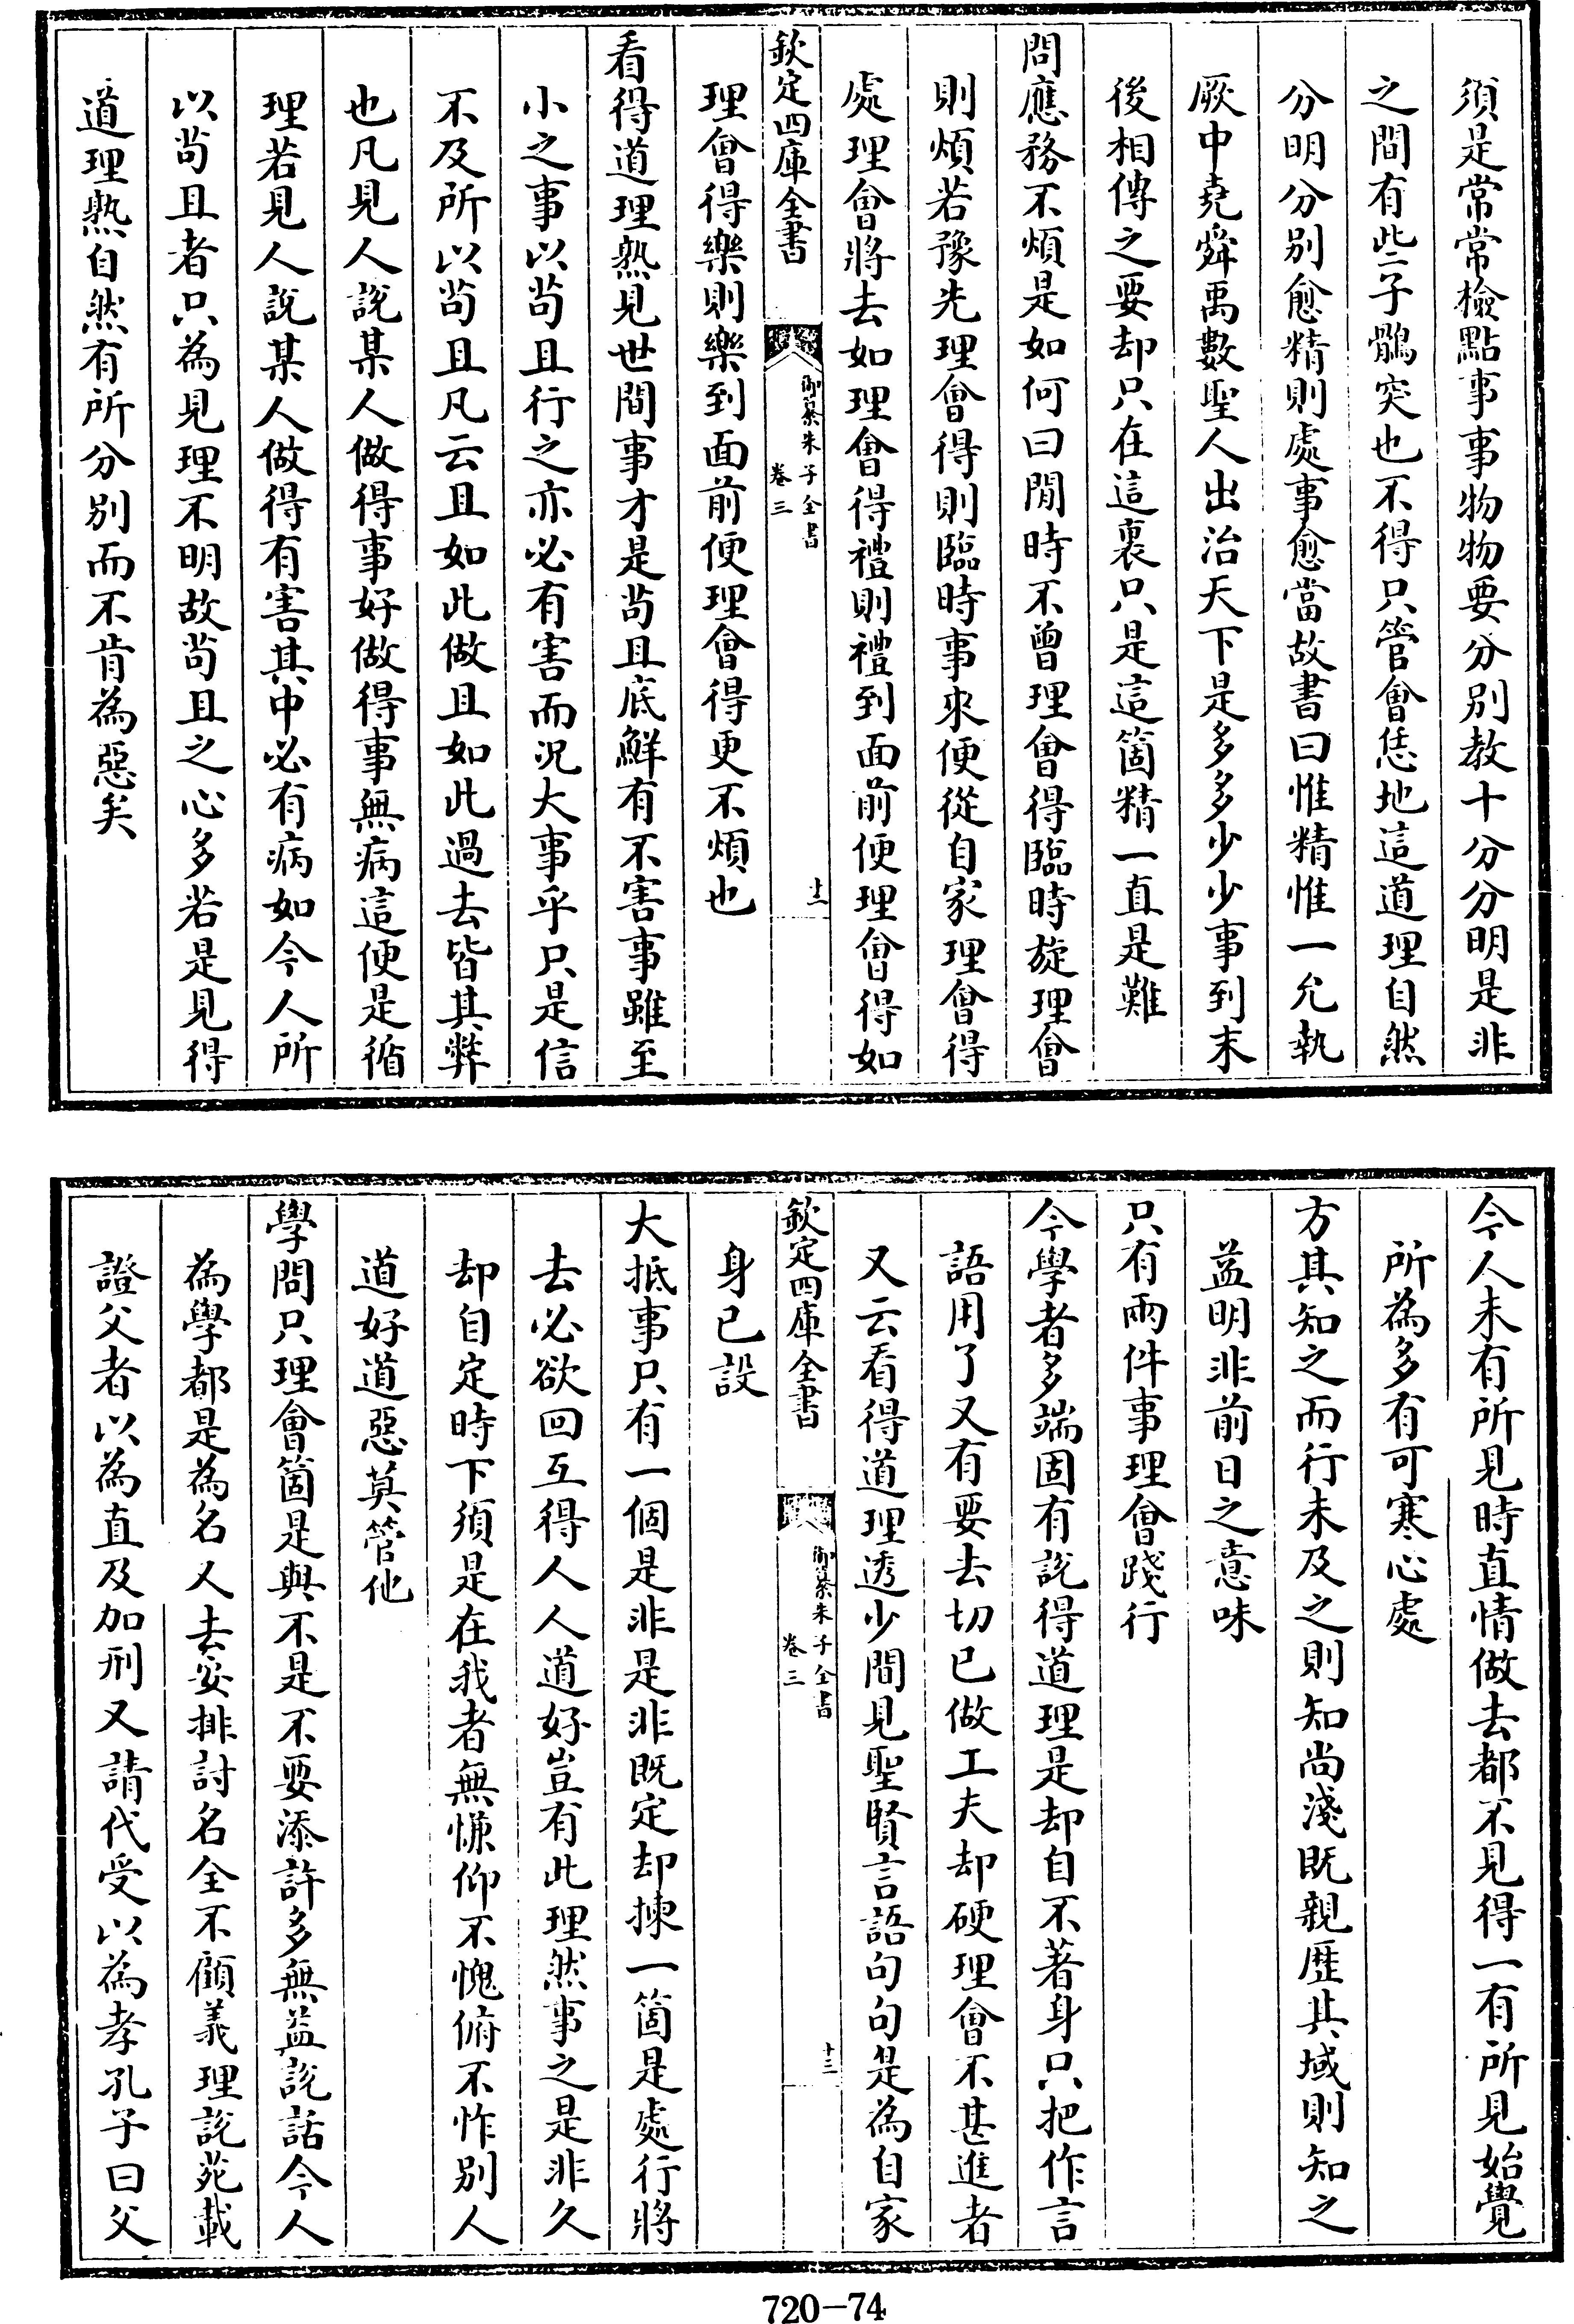 須是常常檢點事事物物要分别教十分分明是非
之間有些子鶻突也不得只管會恁地這道理自然
分明分别愈精則處事愈當故書曰惟精惟一允執
厥中堯舜禹數聖人出治天下是多多少少事到末
後相傳之要却只在這裏只是這箇精一直是難
問應務不煩是如何曰閒時不曽理會得臨時旋理會
則煩若豫先理會得則臨時事來便從自家理會得
處理會將去如理會得禮則禮到面前便理會得如
欽定四庫全書
御纂朱子全書
卷三
十二
理會得樂則樂到面前便理會得更不煩也
看得道理熟見世間事才是苟且底鮮有不害事雖至
小之事以苟且行之亦必有害而况大事乎只是信
不及所以苟且凡云且如此做且如此過去皆其弊
也凡見人說某人做得事好做得事無病這便是循
理若見人說某人做得有害其中必有病如今人所
以苟且者只為見理不明故苟且之心多若是見得
道理熟自然有所分别而不肯為惡矣
今人未有所見時直情做去都不見得一有所見始覺
所為多有可寒心處
方其知之而行未及之則知尚淺既親歴其域則知之
益明非前日之意味
只有兩件事理會踐行
今學者多端固有説得道理是却自不著身只把作言
語用了又有要去切已做工夫却硬理會不甚進者
又云看得道理透少間見聖賢言語句句是為自家
欽定四庫全書
御纂朱子全書
卷三
十三
身已設
大抵事只有一個是非是非既定却揀一箇是處行將
去必欲回互得人人道好豈有此理然事之是非久
却自定時下須是在我者無慊仰不愧俯不怍别人
道好道惡莫管他
學問只理會箇是與不是不要添許多無益說話今人
為學都是為名又去安排討名全不顧義理說苑載
證父者以為直及加刑又請代受以為孝孔子曰父
720-74